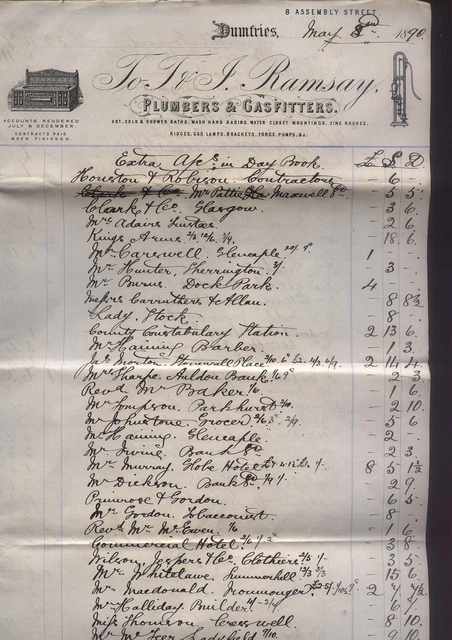 8 ASSEMBLY STREET
Dumfries, May 1890
To T & J. Ramsay,
PLUMBERS & GASFITTERS.
ACCOUNTS RENDERED
JULY & DECEMBER.
CONTRACTS PAID
WHEN FINISHED.
HOT, COLD & SHOWER BATHS, WASH HAND BASINS, WATER CLOSET MOUNTINGS, ZINC RHONES,
RIDGES, GAS LAMPS, BRACKETS, FORCE PUMPS, &c.
Extra A/cs in Day Book £ S D
Houston & Robison Contractors - 6 -
Maxwell - 5 5
Clark & Co Glasgow - 3 6
Mrs Adairs - 2 6
Kings Arms - 18 6
Mr Carswell Glencaple 1 - -
Mr Hunter, Sherrington - 3 -
Mr Burns, Dock Park 4
Messrs Carruthers & Allan - 8 8½
Lady Stock - 8 -
County Constabulary Station 2 13 6
Mr Haining Barber - 1 3
2 14 4
Mr Sharpe - 2 3
Revd Mr Baker - 1 6
Mr Tompson Parkhurst - 2 10
Mr Johnstone Grocer - 5 6
Mr Haining Glencaple - 2 -
Mr Irving Bank - 2 3
Mr Murray Globe Hotel 8 5 1½
Mr Dickson Bank - 2 9
Primrose & Gordon - 6 5
Mr Gordon Tobacconist - 8
Revd Mr McEwen 1/6 - 1 6
Commercial Hotel - 3 8
Wilson Clothiers - 3 5
Mr Whitelaw, Summerhill - 15 6
Mr Macdonald Ironmonger 2 7 7½
Mr Halliday Builder - 6
Miss Thomson Cresswell - 8 10
Ladyfield 9 10